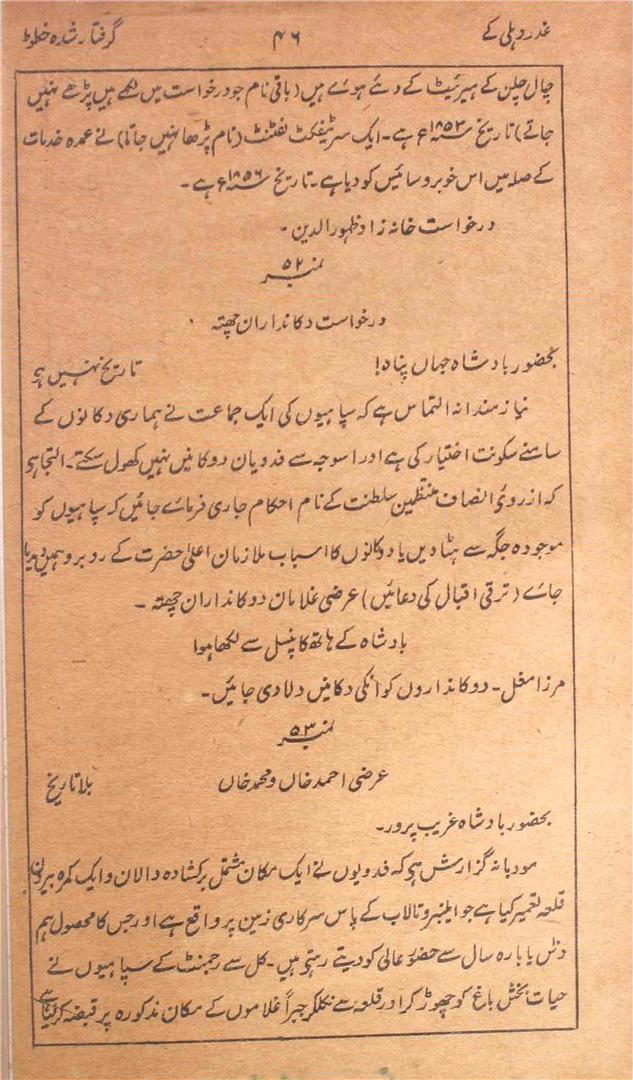 غدر دہلی کے
۴۶
گرفتار شدہ خطوط
چال چلن کے ہیریٹ کے دئے ہوے ہیں (باقی نام جو درخواست میں لکھے ہیں پڑھے نہیں
جاتے) تاریخ ۱۸۵۳ء ہے۔ ایک سرٹیفکٹ لفٹنٹ (نام پڑھا نہیں جاتا) نے عمدہ خدمات
کے صلہ میں اس خوبرو سائیس کو دیا ہے۔ تاریخ ۱۸۵۶ء ہے۔
درخواست خانہ زاد ظہور الدین۔
نمبر ۵۲
درخواست دکانداران چھتہ
بحضور بادشاہ جہاں پناہ! تاریخ نہیں ہے
نیازمندانہ التماس ہے کہ سپاہیوں کی ایک جماعت نے ہماری دکانوں کے
سامنے سکونت اختیار کی ہے اور اسوجہ سے فدویان دوکانیں نہیں کھول سکتے۔ التجا ہے
کہ از روئے انصاف منتظمین سلطنت کے نام احکام جاری فرمائے جائیں کہ سپاہیوں کو
موجودہ جگہ سے ہٹا دیں یا دوکانوں کا اسباب ملازمان اعلیٰ حضرت کے روبرو ہمیں دیدیا
جاے (ترقی اقبال کی دعائیں) عرضی غلامان دوکانداران چھتہ۔
بادشاہ کے ہاتھ کا پنسل سے لکھا ہوا
مرزا مغل۔ دوکانداروں کو انکی دکانیں دلادی جائیں۔
نمبر ۵۳
عرضی احمد خاں و محمد خاں بلا تاریخ
بحضور بادشاہ غریب پرور۔
مودبانہ گزارش ہے کہ فدویوں نے ایک مکان مشتمل بر کشادہ دالان و ایک کمرہ بیرون
قلعہ تعمیر کیا ہے جو ایلنبرو تالاب کے پاس سرکاری زمین پر واقع ہے اور جس کا محصول ہم
دس یا بارہ سال سے حضور عالی کو دیتے رہتے ہیں۔ کل سے رجمنٹ کے سپاہیوں نے
حیات بخش باغ کو چھوڑ کر اور قلعہ سے نکلکر جبراً غلاموں کے مکان مذکورہ پر قبضہ کرلیا ہے